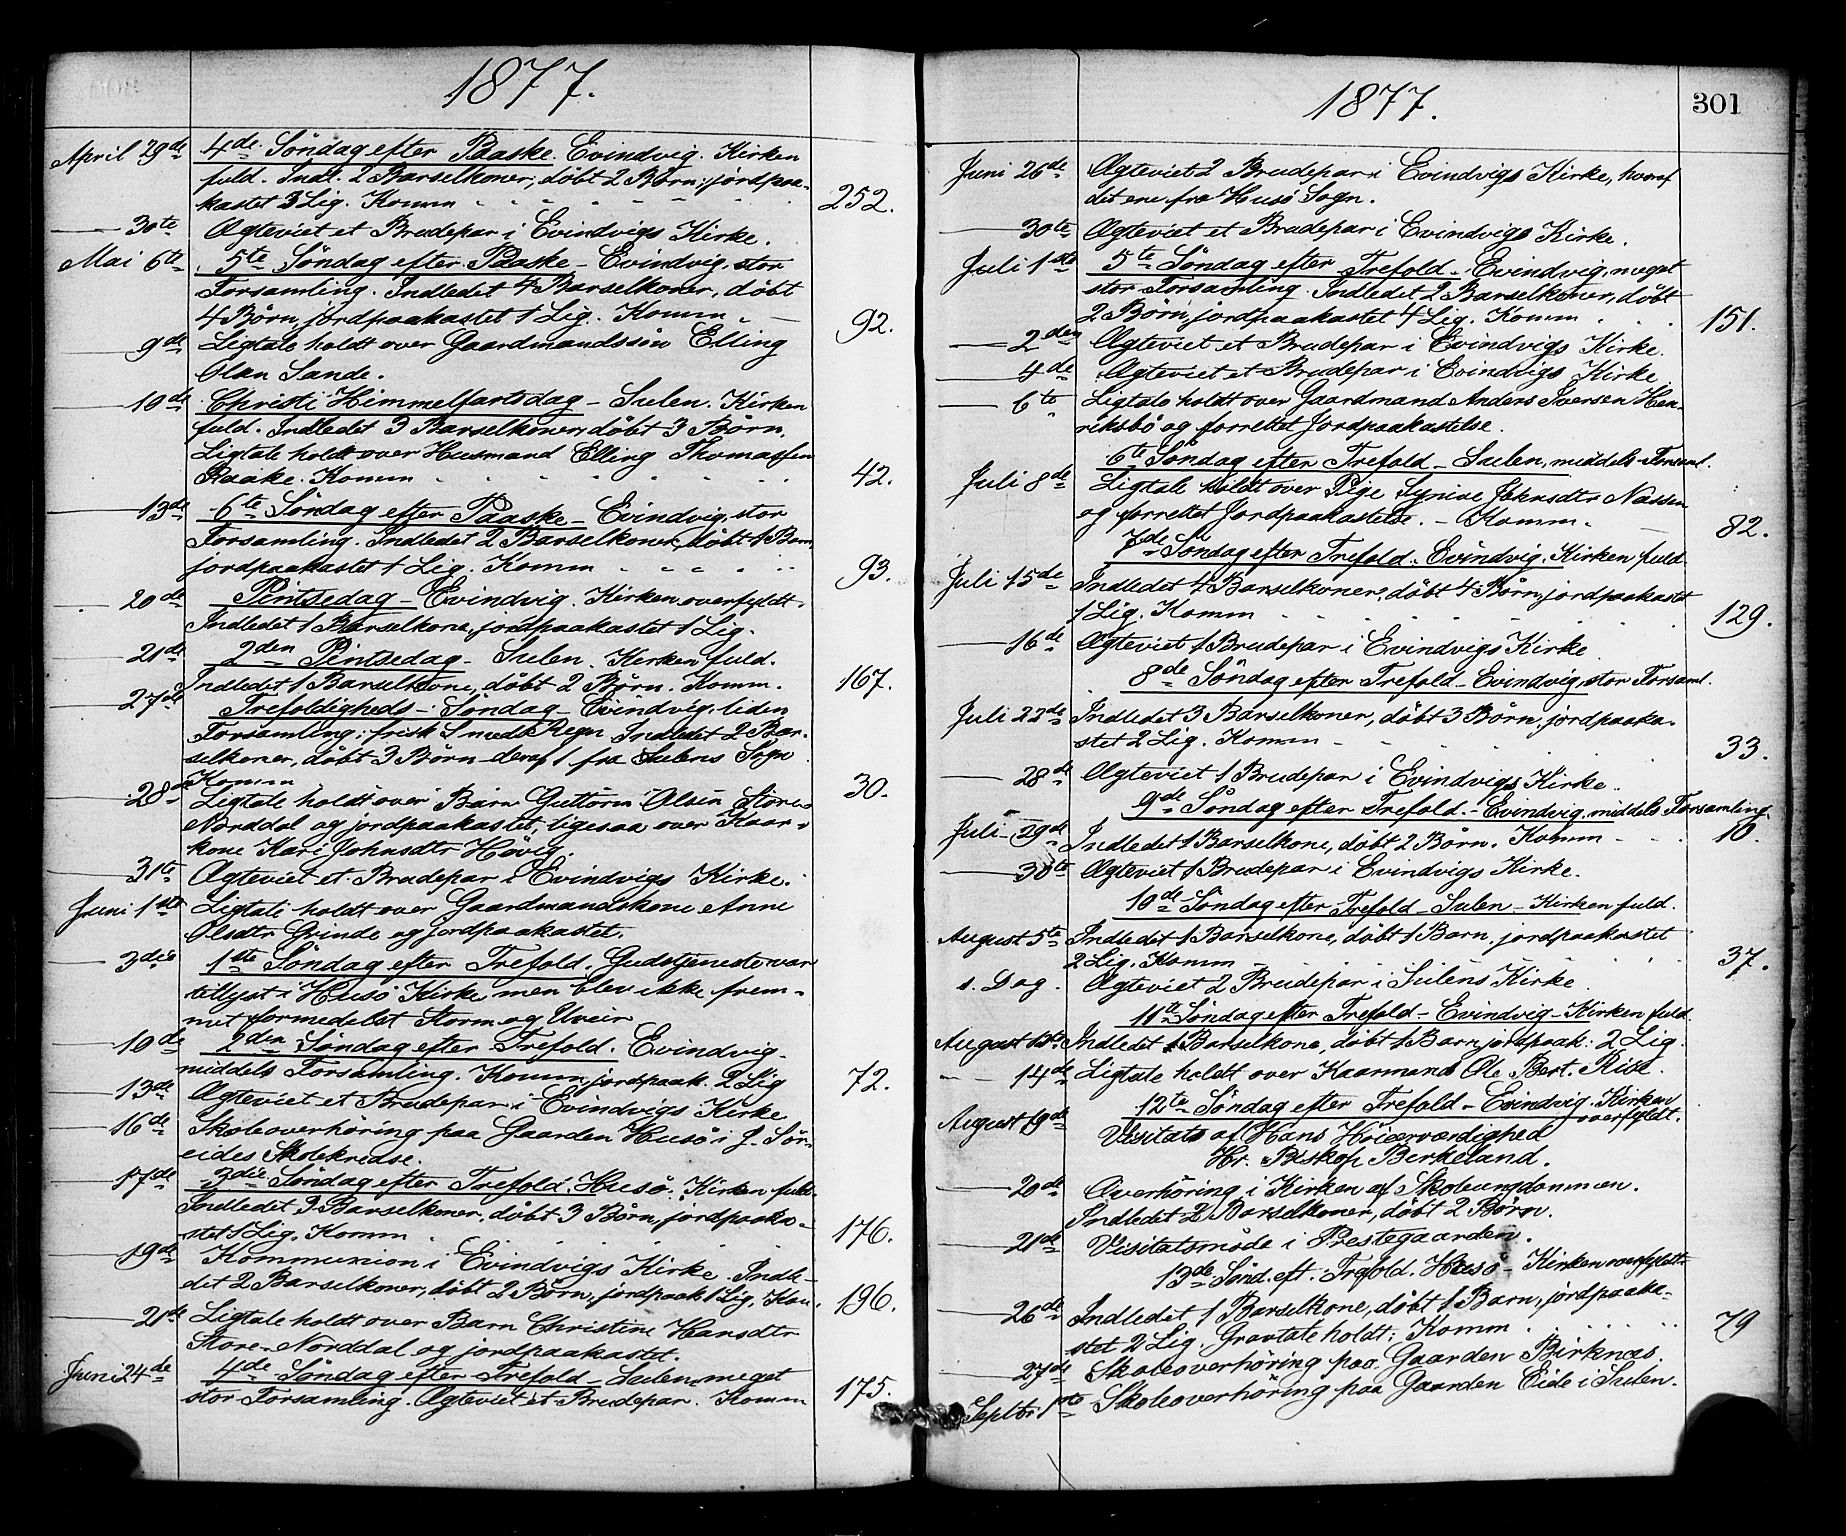 1877.
April 29de 4de Søndag efter Paaske. Evindvig. Kirken
fuld. Indl. 2 Barselkoner, døbt 2 Børn, jordpaa-
kastet 3 Lig. Komm 252.
30te Ægteviet et Brudepar i Evindvigs Kirke.
Mai 6te 5te Søndag efter Paaske - Evindvig, stor
Forsamling. Indledet 4 Barselkoner, døbt
4 Børn, jordpaakastet 1 Lig. Komm. 92.
9de Ligtale holdt over Gaardmandssøn Elling
Olsen Sande.
10de Christi Himmelfartsdag - Sulen. Kirken
fuld. Indledet 3 Barselkoner, døbt 3 Børn.
Ligtale holdt over Husmand Elling Thomassen
Raake. Komm 42.
13de 6te Søndag efter Paaske - Evindvig, stor
Forsamling. Indledet 2 Barselkoner, døbt 1 Barn,
jordpaakastet 1 Lig. Komm 93.
20de Pintsedag - Evindvig. Kirken overfyldt.
Indledet 1 Barselkone, jordpaakastet 1 Lig.
21de 2den Pintsedag - Sulen. Kirken fuld.
Indledet 1 Barselkone, døbt 2 Børn. Komm. 167.
27de Trefoldigheds-Søndag - Evindvig. liden
Forsamling; frisk S med Regn. Indledet 2 Bar-
selkoner, døbt 3 Børn deraf 1 fra Sulens Sogn
Komm 30.
28de Ligtale holdt over Barn Guttorm Olsen Store-
Norddal og jordpaakastet, ligesaa over Kaar-
kone Kari Johnsdtr Høvig.
31te Ægteviet et Brudepar i Evindvigs Kirke.
Juni 1ste Ligtale holdt over Gaardmandskone Anne
Olsdtr Grinde og jordpaakastet.
3die 1ste Søndag efter Trefold. Gudstjeneste var
tillyst i Husø Kirke men blev ikke frem-
met formedelst Storm og Uveir
10de 2den Søndag efter Trefold. Evindvig.
middels Forsamling. Komm, jordpaak. 2 Lig 72.
13de Ægteviet et Brudepar i Evindvigs Kirke
16de Skoleoverhøring paa Gaarden Husø i J. Sør-
eides Skolekredse.
17de 3die Søndag efter Trefold. Husø. Kirken fuld.
Indledet 3 Barselkoner, døbt 3 Børn, jordpaaka-
stet 1 Lig. Komm 176.
19de Kommunion i Evindvigs Kirke. Indle-
det 2 Barselkoner, døbt 2 Børn, jordpaak 1 Lig, Kom. 196.
21de Ligtale holdt over Barn Christine Hansdtr
Store-Norddal og jordpaakastet.
Juni 24de 4de Søndag efter Trefold - Sulen, meget
stor Forsamling. Ægteviet et Brudepar. Komm 175.
1877.
301
Juni 26de Ægteviet 2 Brudepar i Evindvigs Kirke, hvoraf
det ene fra Husø Sogn.
30te Ægteviet et Brudepar i Evindvigs Kirke.
Juli 1ste 5te Søndag efter Trefold - Evindvig, meget
stor Forsamling. Indledet 2 Barselkoner, døbt
2 Børn, jordpaakastet 4 Lig. Komm 151.
2den Ægteviet et Brudepar i Evindvigs Kirke.
4de Ægteviet et Brudepar i Evindvigs Kirke
6te Ligtale holdt over Gaardmand Anders Iversen Hen-
riksbø og forrettet Jordpaakastelse.
6te Søndag efter Trefold - Sulen, middels Forsaml.
Juli 8de Ligtale holdt over Pige Synive Johnsdtr Nassen
og forrettet Jordpaakastelse. - Komm. 82.
7de Søndag efter Trefold. Evindvig. Kirken fuld.
Juli 15de Indledet 4 Barselkoner, døbt 4 Børn, jordpaakastet
1 Lig. Komm 129.
16de Ægteviet 1 Brudepar i Evindvigs Kirke
8de Søndag efter Trefold - Evindvig, stor Forsaml.
Juli 22de Indledet 3 Barselkoner, døbt 3 Børn, jordpaaka-
stet 2 Lig. Komm 33.
28de Ægteviet 1 Brudepar i Evindvigs Kirke.
9de Søndag efter Trefold. - Evindvig, middels Forsamling.
Juli 29de Indledet 1 Barselkone, døbt 2 Børn. Komm 10.
30te Ægteviet 1 Brudepar i Evindvigs Kirke.
10de Søndag efter Trefold - Sulen - Kirken fuld.
August 5te Indledet 1 Barselkone, døbt 1 Barn, jordpaakastet
2 Lig. Komm 37.
s. Dag. Ægteviet 2 Brudepar i Sulens Kirke.
11te Søndag efter Trefold - Evindvig - Kirken fuld.
August 12te Indledet 1 Barselkone, døbt 1 Barn jordpaak: 2 Lig.
14de Ligtale holdt over Kaarmand Ole Bert.
12te Søndag efter Trefold - Evindvig. Kirken
overfyldt.
August 19de Visitats af Hans Høiærværdighed
Hr. Biskop Berkeland.
20de Overhøring i Kirken af Skoleungdommen.
Indledet 2 Barselkoner, døbt 2 Børn.
21de Visitatsmøde i Prestegaarden.
13de Sønd. eft. Trefold. Husø - Kirken overfyldt.
26de Indledet 1 Barselkone, døbt 1 Barn, jordpaaka-
stet 2 Lig. Gravtale holdt; Komm 79
27de Skoleoverhøring paa Gaarden Birknæs.
Septbr 1ste Skoleoverhøring paa Gaarden Eide i Sulen.